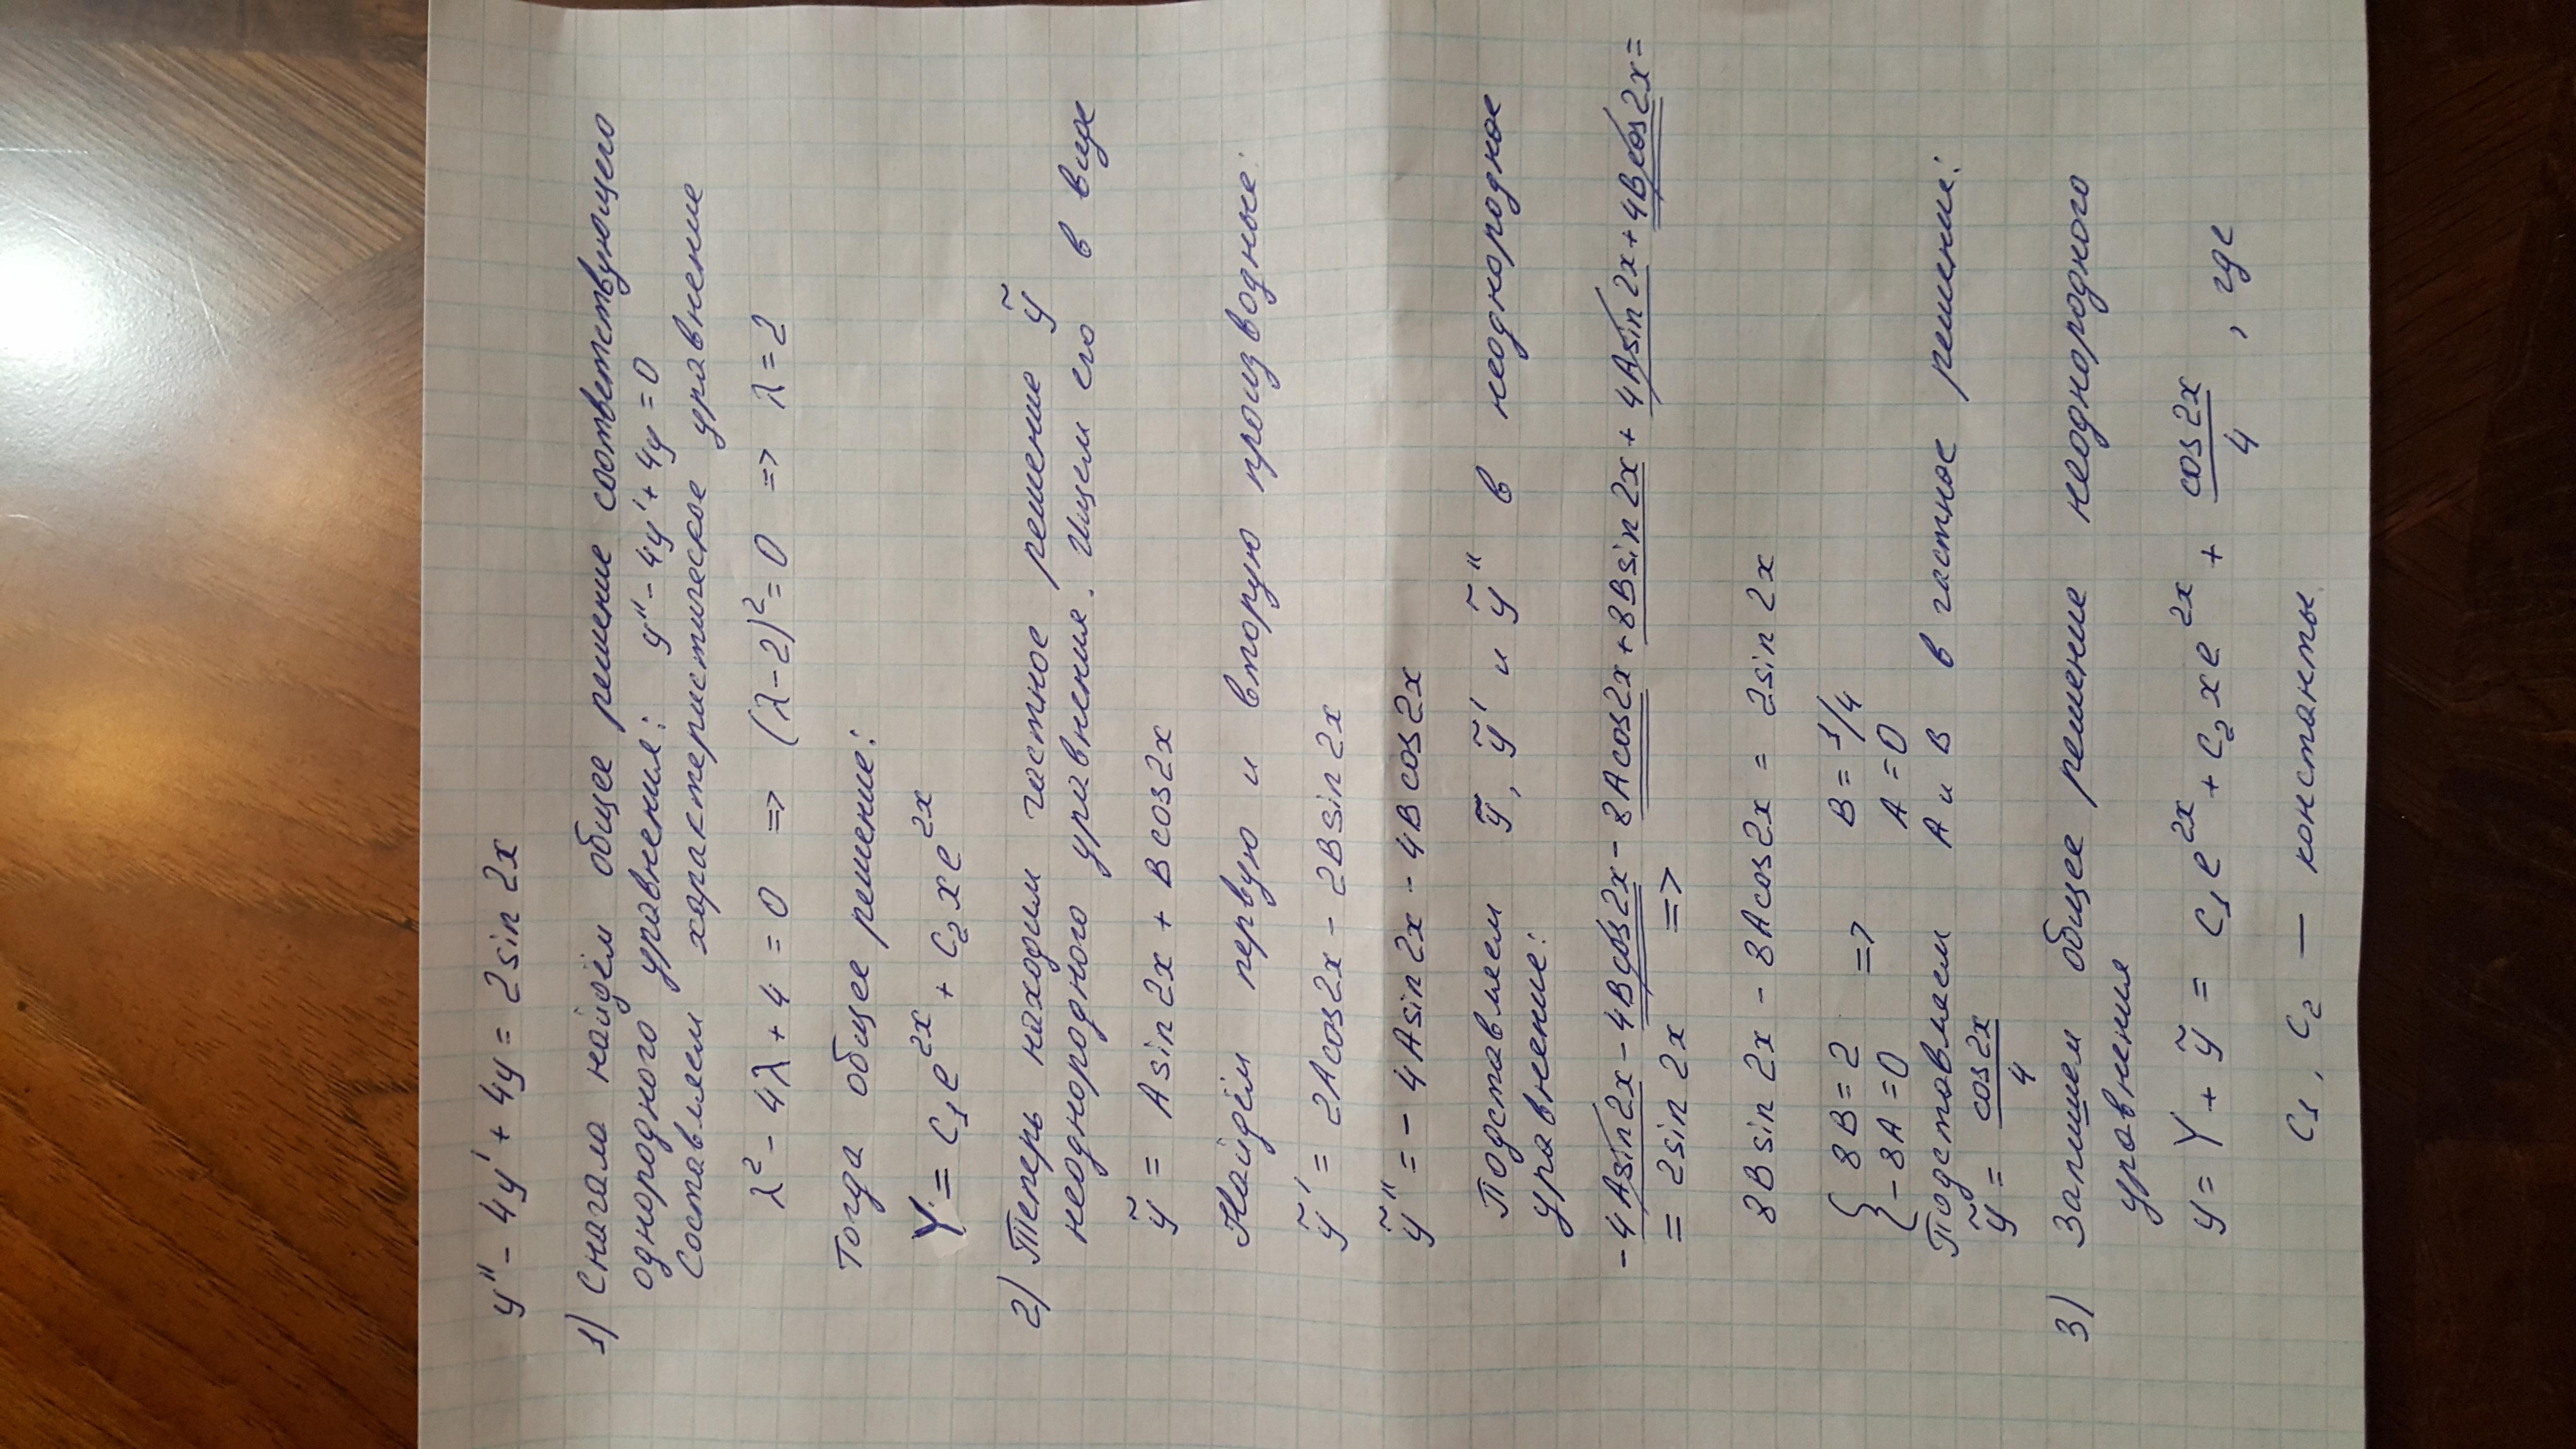 y'' - 4y' + 4y = 2 sin 2x
1) Сначала найдём общее решение соответствующего
однородного уравнения: y'' - 4y' + 4y = 0
Составляем характеристическое уравнение
λ² - 4λ + 4 = 0 => (λ - 2)² = 0 => λ = 2
Тогда общее решение:
Y = C₁e²ˣ + C₂xe²ˣ
2) Теперь находим частное решение ỹ
неоднородного уравнения. Ищем его в виде
ỹ = A sin 2x + B cos 2x
Найдём первую и вторую производные:
ỹ' = 2A cos 2x - 2B sin 2x
ỹ'' = - 4A sin 2x - 4B cos 2x
Подставляем ỹ, ỹ' и ỹ'' в неоднородное
уравнение:
-4A sin 2x - 4B cos 2x - 8A cos 2x + 8B sin 2x + 4A sin 2x + 4B cos 2x =
= 2 sin 2x =>
8B sin 2x - 8A cos 2x = 2 sin 2x
{ 8B = 2 => B = 1/4
- 8A = 0 A = 0
Подставляем A и B в частное решение:
ỹ = cos 2x / 4
3) Запишем общее решение неоднородного
уравнения
y = Y + ỹ = C₁e²ˣ + C₂xe²ˣ + cos 2x / 4 , где
C₁, C₂ — константы